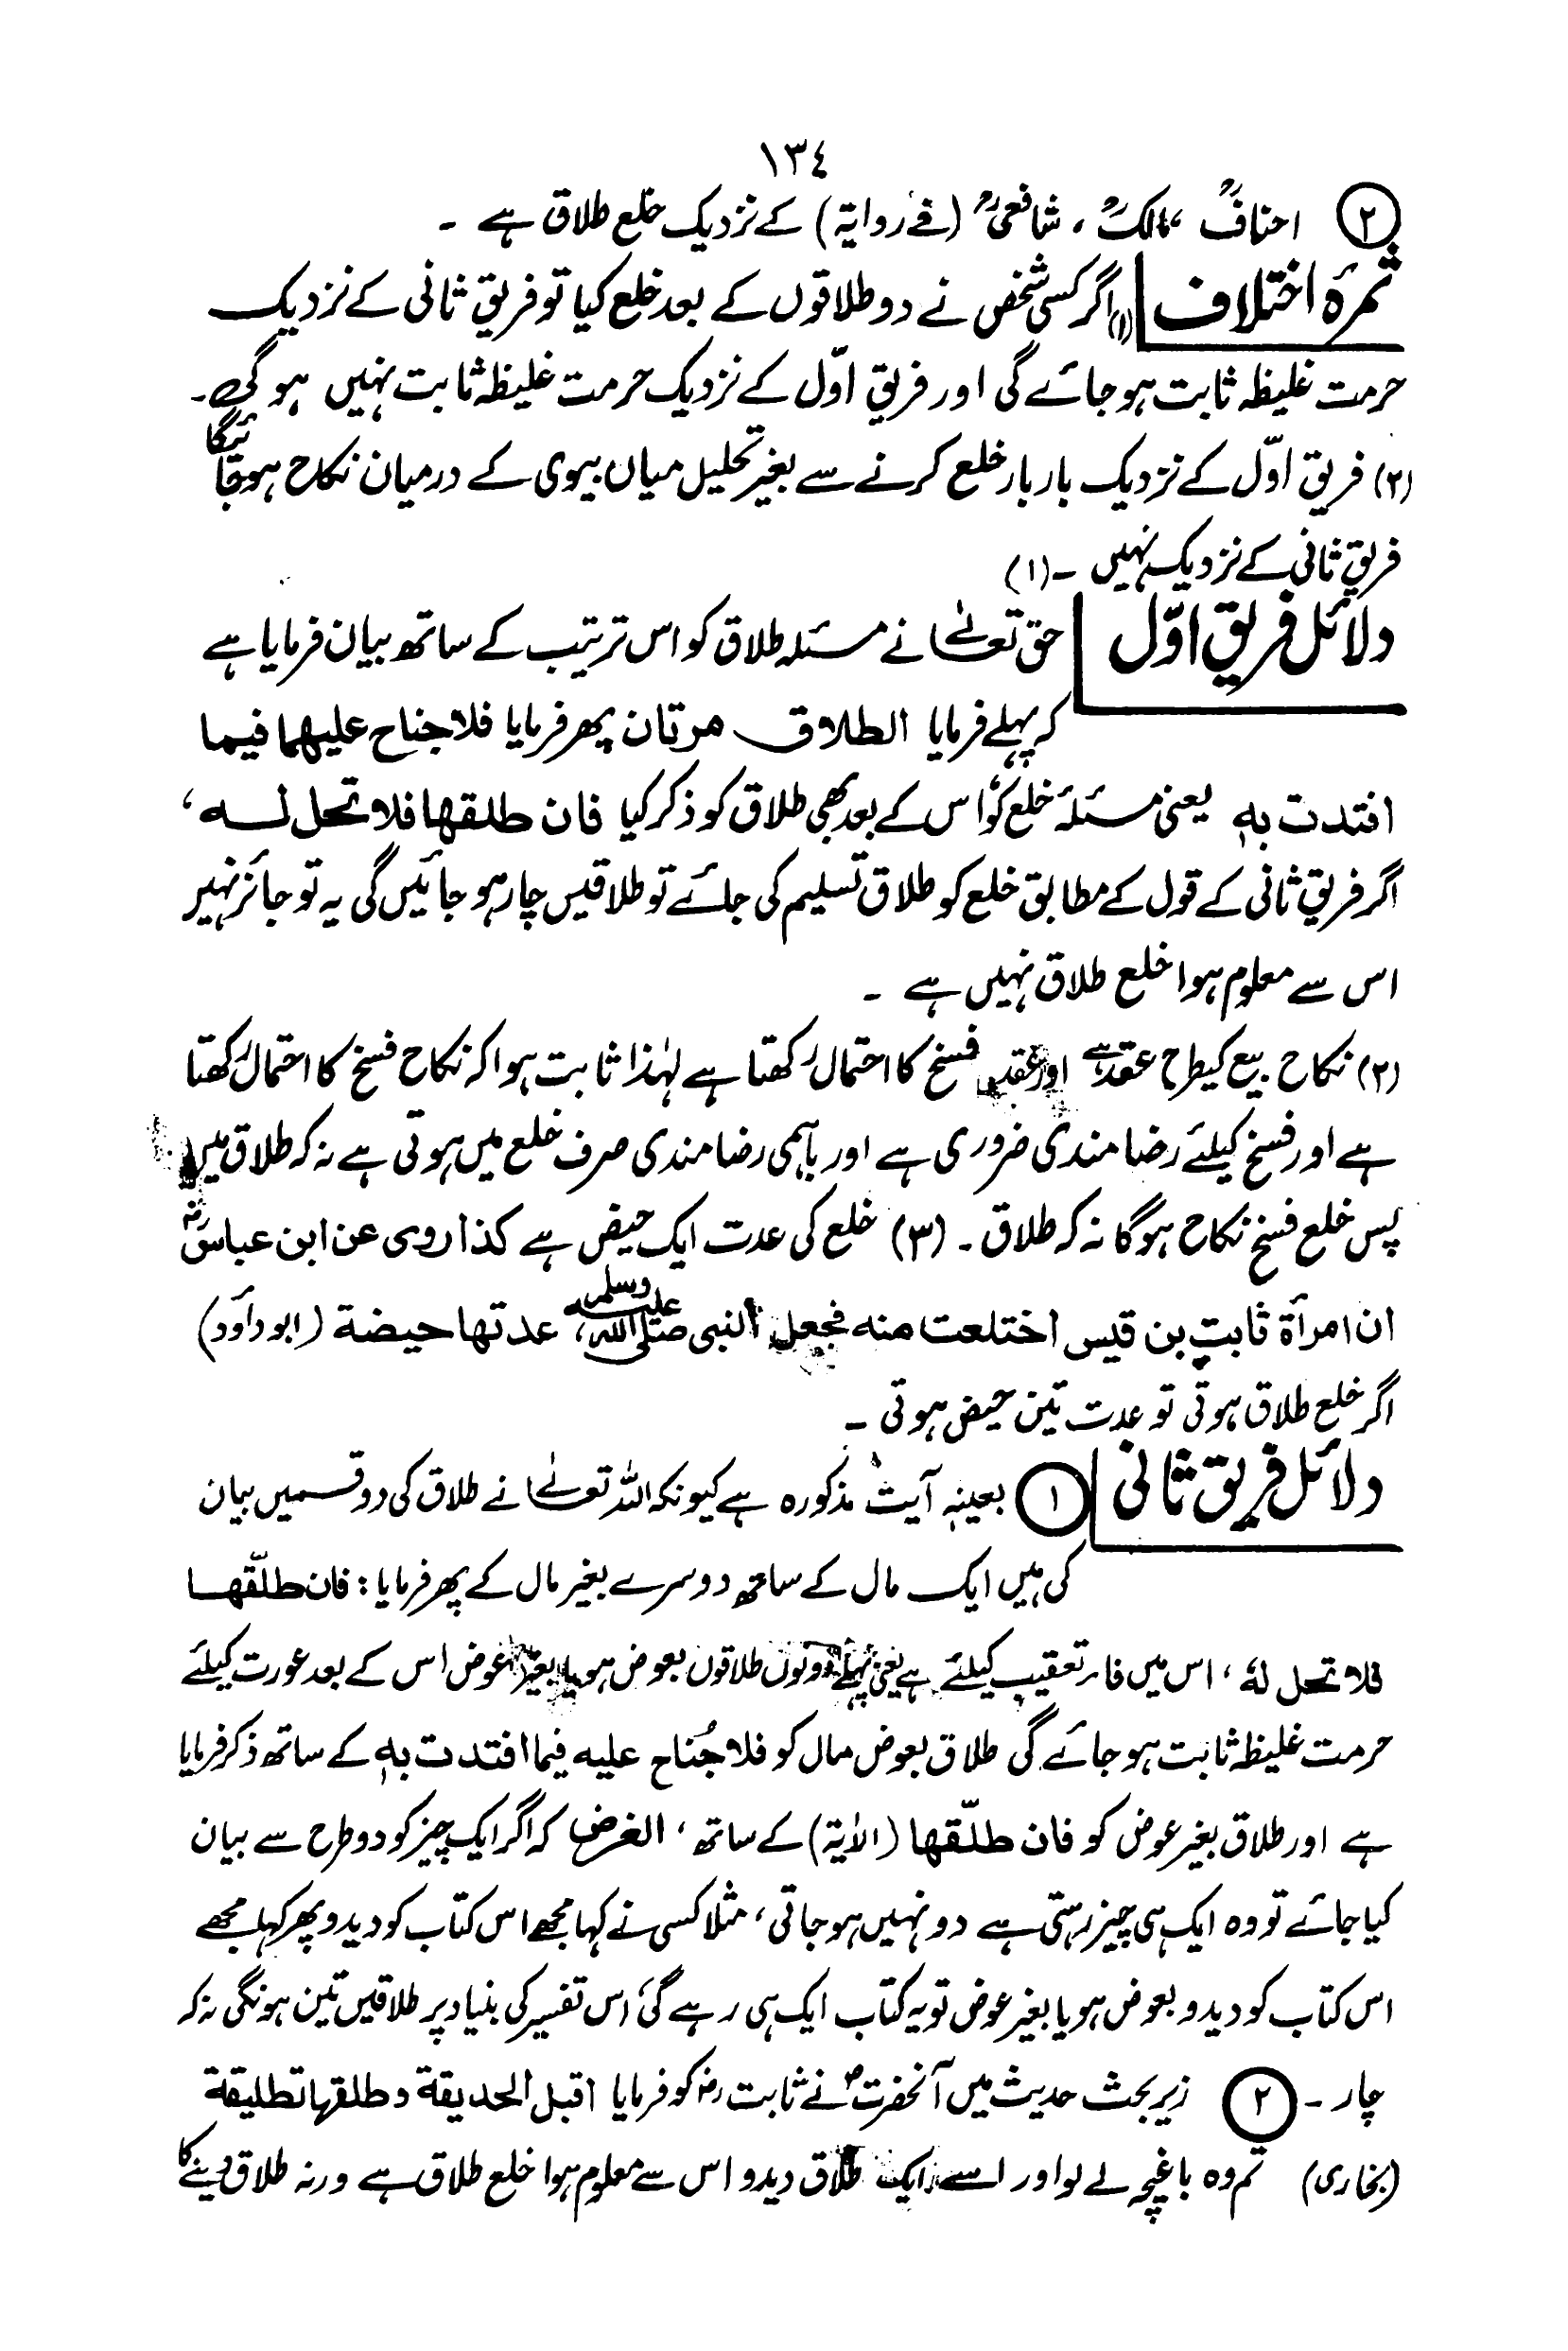 ١٣٤
(٢) احنافؒ، مالکؒ، شافعیؒ (فے روایة) کے نزدیک خلع طلاق ہے ۔
ثمرۂ اختلاف (۱) اگر کسی شخص نے دو طلاقوں کے بعد خلع کیا تو فریق ثانی کے نزدیک
حرمت غلیظہ ثابت ہو جائے گی اور فریق اوّل کے نزدیک حرمت غلیظہ ثابت نہیں ہو گی۔
(۲) فریق اوّل کے نزدیک بار بار خلع کرنے سے بغیر تحلیل میاں بیوی کے درمیان نکاح ہوجائیگا
فریق ثانی کے نزدیک نہیں ۔(۱)
دلائل فریق اوّل حق تعالےٰ نے مسئلہ طلاق کو اس ترتیب کے ساتھ بیان فرمایا ہے
کہ پہلے فرمایا الطلاق مرتان پھر فرمایا فلا جناح علیھما فیما
افتدت بہٖ یعنی مسئلۂ خلع کو، اس کے بعد بھی طلاق کو ذکر کیا فان طلقھا فلا تحل لہ،
اگر فریق ثانی کے قول کے مطابق خلع کو طلاق تسلیم کی جائے تو طلاقیں چار ہو جائیں گی یہ تو جائز نہیں
اس سے معلوم ہوا خلع طلاق نہیں ہے ۔
(۲) نکاح بیع کیطرح عقد ہے اور عقد فسخ کا احتمال رکھتا ہے لہٰذا ثابت ہوا کہ نکاح فسخ کا احتمال رکھتا
ہے اور فسخ کیلئے رضا مندی ضروری ہے اور باہمی رضا مندی صرف خلع میں ہوتی ہے نہ کہ طلاق میں
پس خلع فسخ نکاح ہوگا نہ کہ طلاق ۔ (۳) خلع کی عدت ایک حیض ہے کذا روی عن ابن عباسؓ
ان امرأة ثابت بن قیس اختلعت منه فجعل النبی صلی اللہ علیہ وسلم عدتھا حیضة (ابو داؤد)
اگر خلع طلاق ہوتی تو عدت تین حیض ہوتی ۔
دلائل فریق ثانی (١) بعینہٖ آیت مذکورہ ہے کیونکہ اللہ تعالےٰ نے طلاق کی دو قسمیں بیان
کی ہیں ایک مال کے ساتھ دوسرے بغیر مال کے پھر فرمایا : فان طلّقھا
فلا تحل لہٗ، اس میں فار تعقیب کیلئے ہے یعنی پہلے دونوں طلاقوں بعوض ہو یا بغیر عوض اس کے بعد عورت کیلئے
حرمت غلیظہ ثابت ہو جائے گی طلاق بعوض مال کو فلا جُناح علیه فیما افتدت بہٖ کے ساتھ ذکر فرمایا
ہے اور طلاق بغیر عوض کو فان طلّقھا (الاٰیة) کے ساتھ، الغرض کہ اگر ایک چیز کو دو طرح سے بیان
کیا جائے تو وہ ایک ہی چیز رہتی ہے دو نہیں ہو جاتی، مثلا کسی نے کہا مجھے اس کتاب کو دیدو پھر کہا مجھے
اس کتاب کو دیدو بعوض ہو یا بغیر عوض تو یہ کتاب ایک ہی رہے گی، اس تفسیر کی بنیاد پر طلاقیں تین ہونگی نہ کہ
چار ۔ (٢) زیر بحث حدیث میں آنحضرتؐ نے ثابت رضؓ کو فرمایا اقبل الحدیقة و طلقھا تطلیقة
(بخاری) تم وہ باغیچہ لے لو اور اسے ایک طلاق دیدو اس سے معلوم ہوا خلع طلاق ہے ورنہ طلاق دینے کا